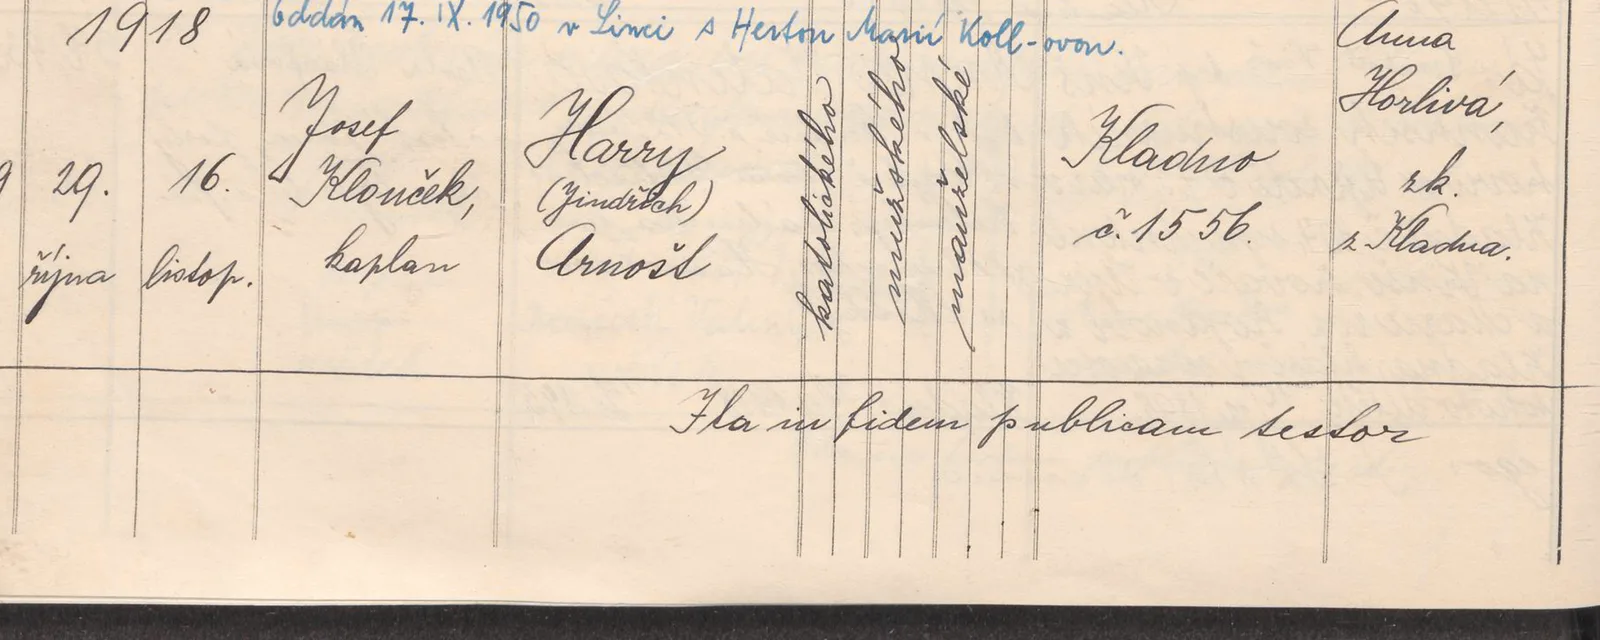 1918
Oddán 17. IX. 1950 v Linci s Hertou Marií Koll-ovou.
9
29.
října
16.
listop.
Josef
Klouček,
kaplan
Harry
(Jindřich)
Arnošt
katolického
mužského
manželské
Kladno
č. 1556.
Anna
Horlivá,
zk.
z Kladna.
Ita in fidem publicam testor